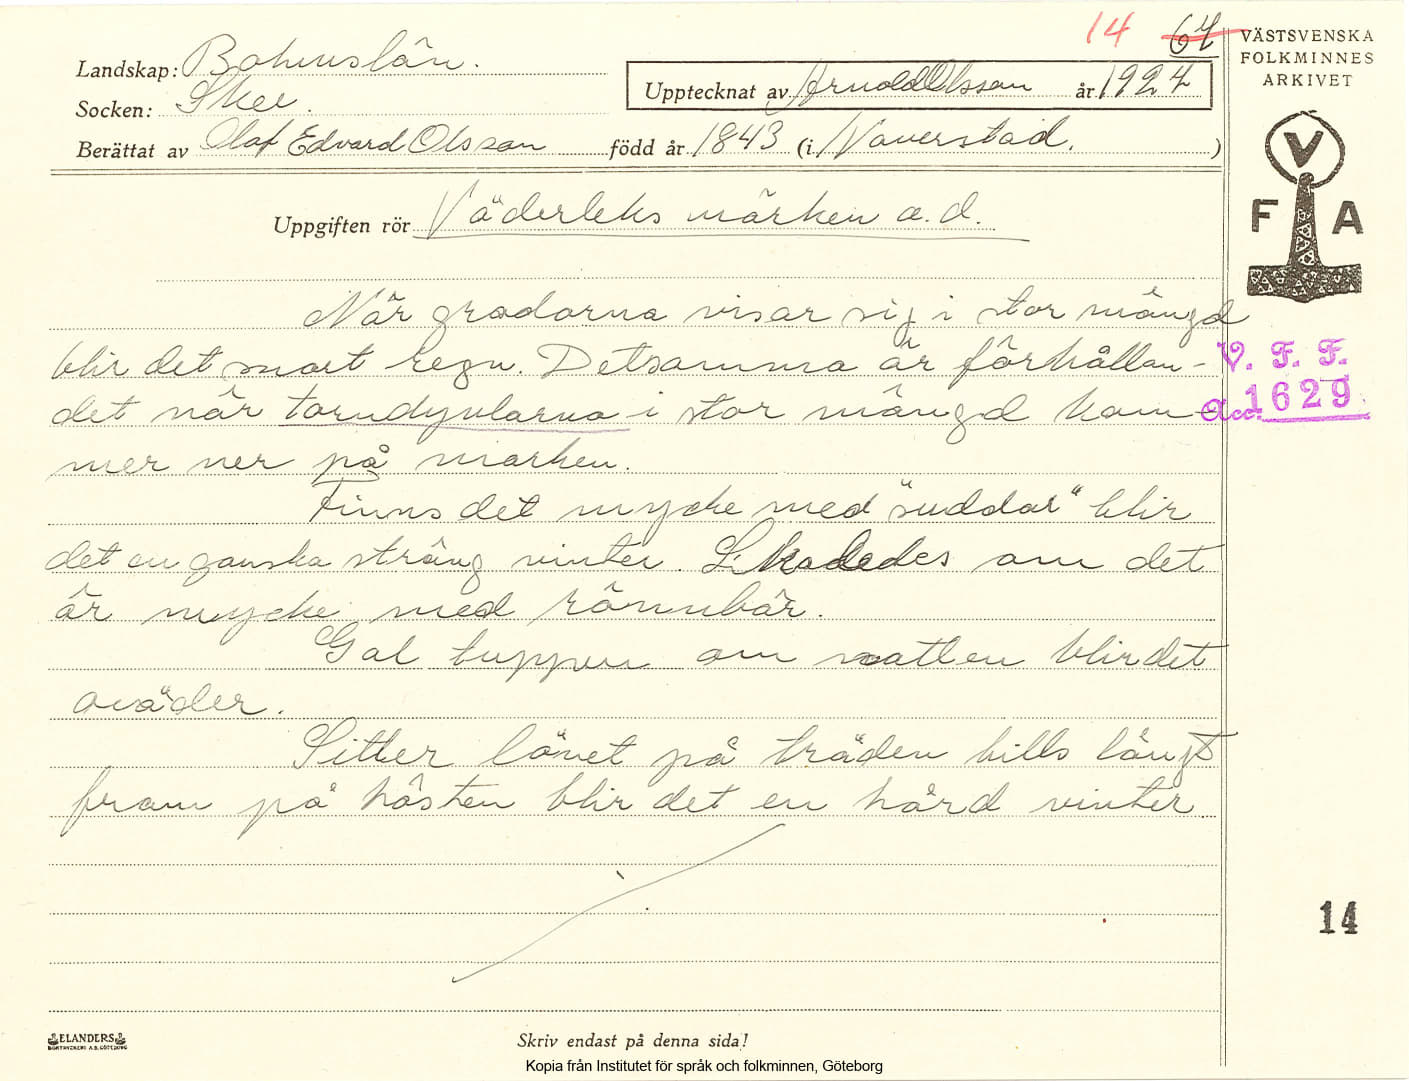 14 64
VÄSTSVENSKA
FOLKMINNES
ARKIVET
Landskap: Bohuslän.
Upptecknat av Arnold Olsson år 1924
Socken: Skee.
Berättat av Olof Edvard Olsson född år 1843 (i Naverstad. )
V
F A
Uppgiften rör Väderleks märken a.d.
När gradorna visar sig i stor mängd
blir det snart regn. Detsamma är förhållan-
det när torndyvlarna i stor mängd kom
mer ner på marken.
V. F. F.
Acc. 1629
Finns det mycke med "suddar" blir
det en ganska sträng vinter. Likadedes om det
är mycke med rönnbär.
Gal tuppen om natten blir det
oväder.
Sitter lövet på träden tills långt
fram på hösten blir det en hård vinter
14
ELANDERS
BOKTRYCKERI A.B. GÖTEBORG
Skriv endast på denna sida!
Kopia från Institutet för språk och folkminnen, Göteborg